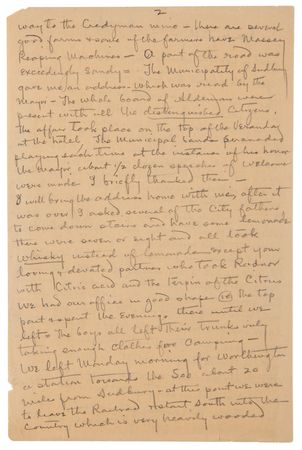 2
way to the Credyman mine - there are several
good farms & some of the farmers have Massey
Reaping Machines - A part of the road was
exceedingly sandy - The Municipality of Sudbury
gave me an address which was read by the
Mayor - The whole board of Aldermen were
present with all the distinguished Citizens.
The affair took place on the top of the Veranda
at the hotel. The Municipal band serenaded
playing each time at the instance of his honor
the Major, about ½ dozen speeches of Welcome
were made I briefly thanked them -
I will bring the address home with me, after it
was over I asked several of the City fathers
to come down stairs and have some lemonade
there were seven or eight and all took
Whisky instead of lemonade except your
loving & devoted partner who took Radnor
with Citric acid and the Terpin of the Citrus
We had our office in good shape (16) the top
part & spent the Evenings there until we
left - The boys all left their trunks only
taking enough Clothes for Camping -
We left Monday morning for Worthington
a station towards the Soo about 20
miles from Sudbury - at this point we were
to leave the Railroad & start South into the
Country which is very heavily wooded